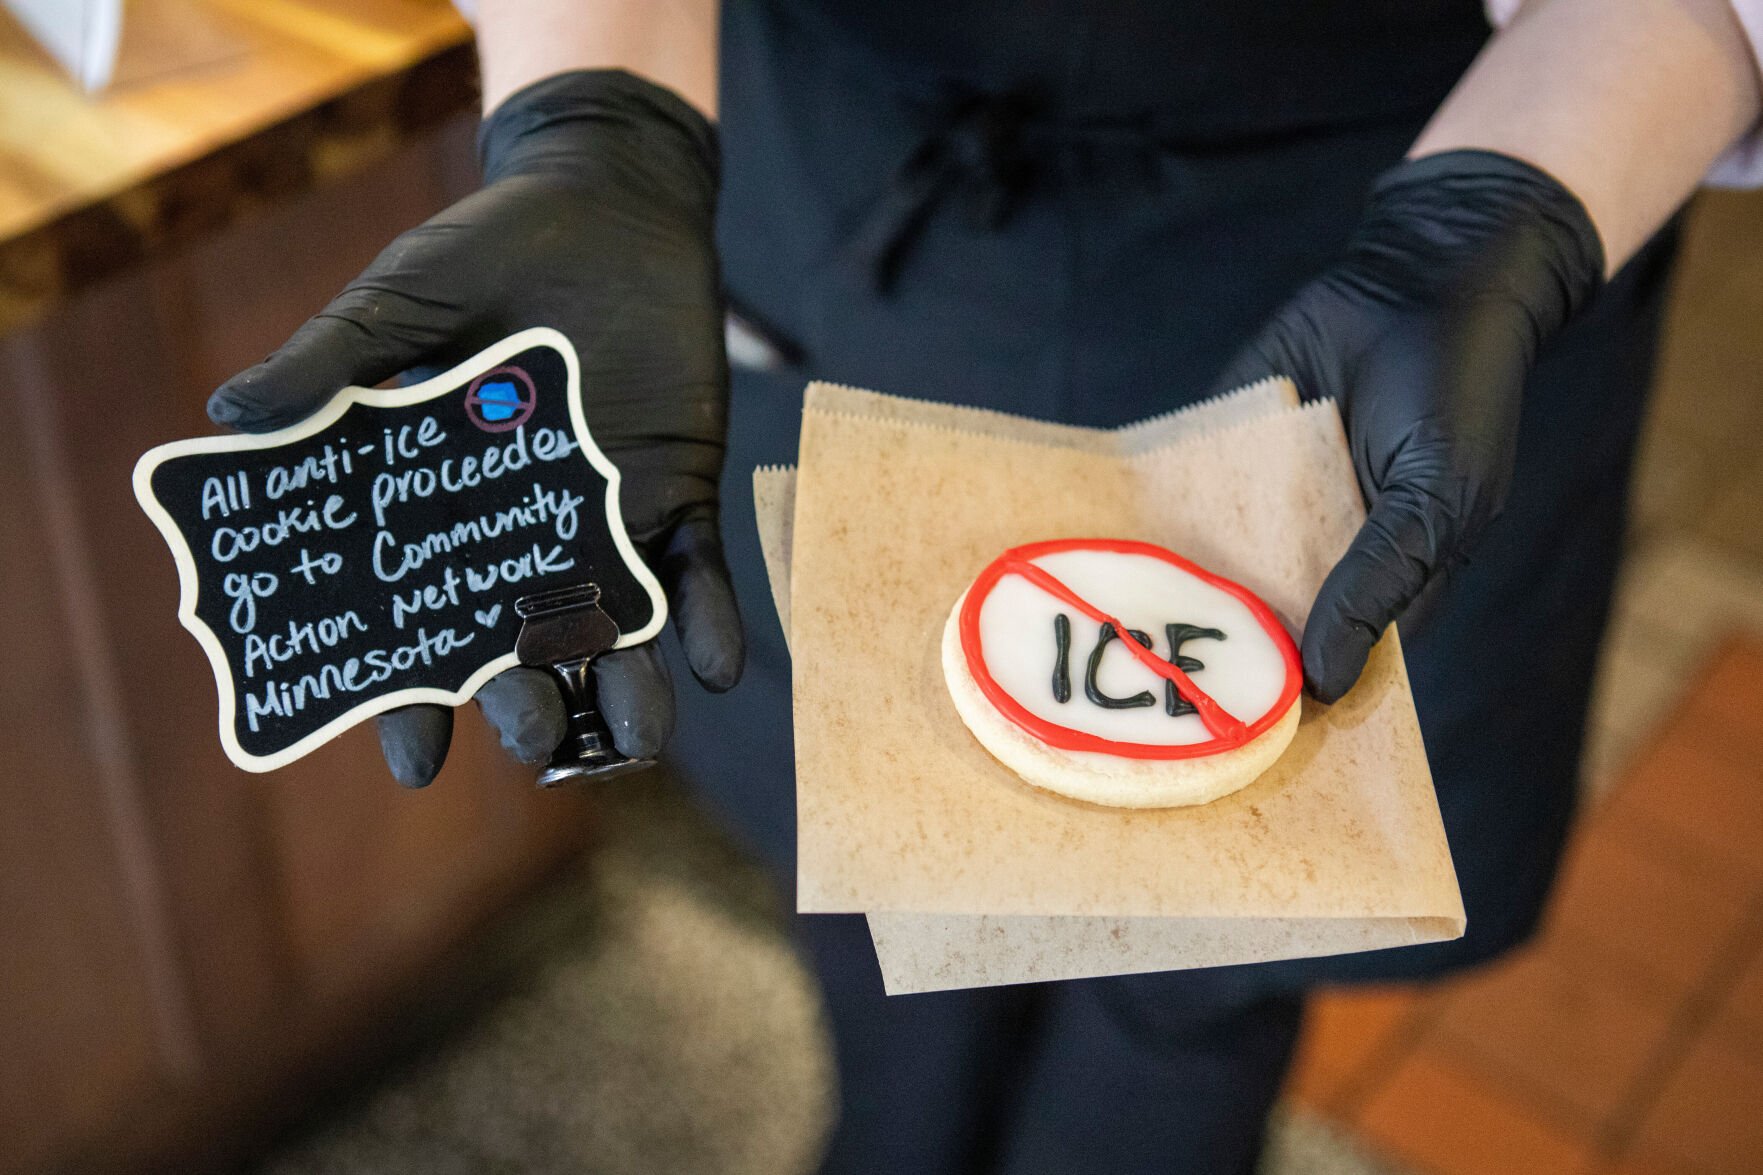 All anti-ice
cookie proceedes
go to Community
Action Network
Minnesota
ICE